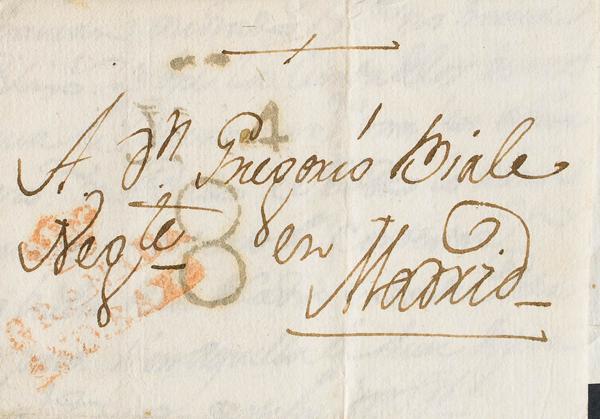 A Dn Gregorio Biale
Negte en Madrid
4
8